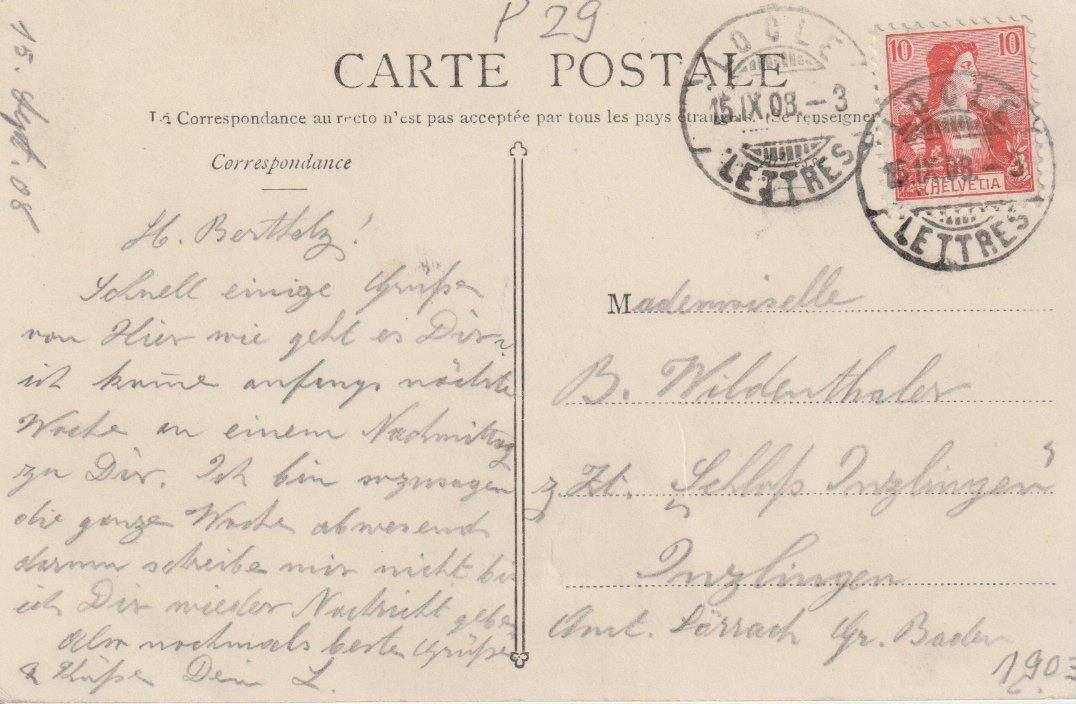 P 29
15. Sept. 08
CARTE POSTALE
La Correspondance au recto n'est pas acceptée par tous les pays étrangers. (Se renseigner
LOCLE
15.IX.08.-3
LETTRES
10 10
HELVETIA
LOCLE
15.IX.08.-3
LETTRES
Correspondance
Schnell einige Grüße
von Hier wie geht es Dir?
ich kom̅e anfangs nächste
Woche an einem Nachmittag
zu Dir. Ich bin sozusagen
die ganze Woche abwesend
darum schreibe mir nicht bis
ich Dir wieder Nachricht gebe.
Also nochmals beste Grüße
& Küße Dein L.
Mademoiselle
B. Wildenthaler
z. Zt. „Schloß Inzlingen"
Inzlingen
Amt. Lörrach Gr. Baden
1903